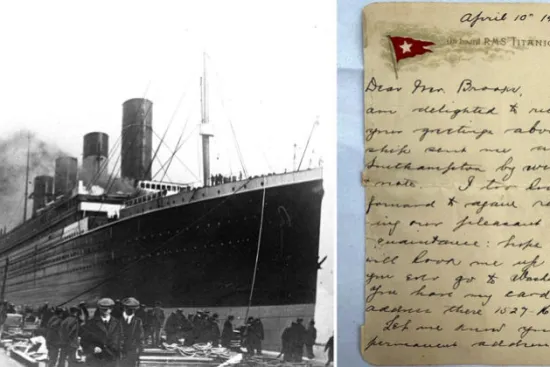 April 10th 19
on board R.M.S. TITANIC
Dear Mr.
am delighted to re
your greetings abo
ship sent me
Southampton by
note. I too
forward to again
ing our pleasant
quaintance; hope
will look me up
you ever go to
You have my card
address there 1527-
Let me know your
permanent addre